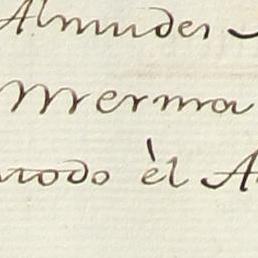 Almudes
Merma
todo èl A